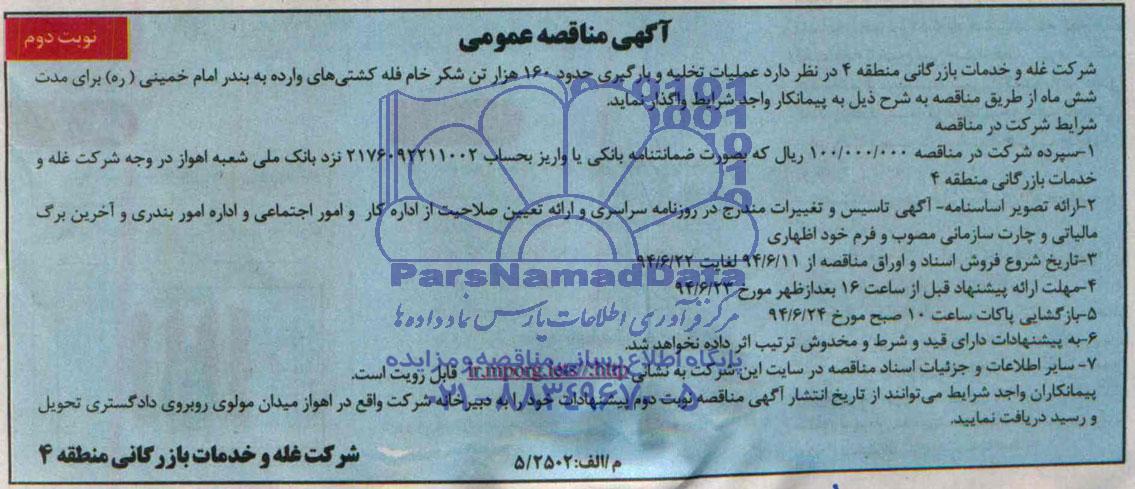 نوبت دوم
آگهی مناقصه عمومی
شرکت غله و خدمات بازرگانی منطقه ۴ در نظر دارد عملیات تخلیه و بارگیری حدود ۱۶۰ هزار تن شکر خام فله کشتی‌های وارده به بندر امام خمینی (ره) برای مدت
شش ماه از طریق مناقصه به شرح ذیل به پیمانکار واجد شرایط واگذار نماید.
شرایط شرکت در مناقصه
۱-سپرده شرکت در مناقصه ۱۰۰/۰۰۰/۰۰۰ ریال که بصورت ضمانتنامه بانکی یا واریز بحساب ۲۱۷۶۰۹۲۲۱۱۰۰۲ نزد بانک ملی شعبه اهواز در وجه شرکت غله و
خدمات بازرگانی منطقه ۴
۲-ارائه تصویر اساسنامه- آگهی تاسیس و تغییرات مندرج در روزنامه سراسری و ارائه تعیین صلاحیت از اداره کار و امور اجتماعی و اداره امور بندری و آخرین برگ
مالیاتی و چارت سازمانی مصوب و فرم خود اظهاری
۳-تاریخ شروع فروش اسناد و اوراق مناقصه از ۹۴/۶/۱۱ لغایت ۹۴/۶/۲۲
۴-مهلت ارائه پیشنهاد قبل از ساعت ۱۶ بعدازظهر مورخ ۹۴/۶/۲۳
۵-بازگشایی پاکات ساعت ۱۰ صبح مورخ ۹۴/۶/۲۴
۶-به پیشنهادات دارای قید و شرط و مخدوش ترتیب اثر داده نخواهد شد.
۷- سایر اطلاعات و جزئیات اسناد مناقصه در سایت این شرکت به نشانی ir.mporg.iets//:http قابل رویت است.
پیمانکاران واجد شرایط می‌توانند از تاریخ انتشار آگهی مناقصه نوبت دوم پیشنهادات خود را به دبیرخانه شرکت واقع در اهواز میدان مولوی روبروی دادگستری تحویل
و رسید دریافت نمایید.
م/الف:۵/۲۵۰۲
شرکت غله و خدمات بازرگانی منطقه ۴
ParsNamadData
مرکز فرآوری اطلاعات پارس نماد داده‌ها
پایگاه اطلاع رسانی مناقصه و مزایده
۰۲۱-۸۸۳۴۹۶۷۰-۵